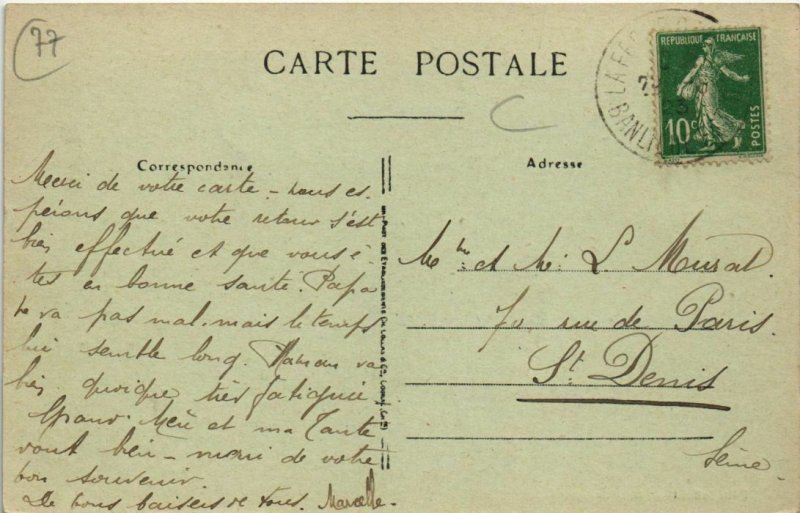 77
CARTE POSTALE
REPUBLIQUE FRANÇAISE
10c
POSTES
BANLI
Correspondance
Merci de votre carte - nous es-
pérons que votre retour s'est
bien effectué et que vous ê-
tes en bonne santé. Papa
ne va pas mal, mais le temps
lui semble long. Maman va
bien quoique très fatiguée,
Grand-Mère et ma Tante
vont bien - merci de votre
bon souvenir.
De bons baisers de tous. Marcelle.
Adresse
Mme et Mr L. Murat.
70 rue de Paris.
St Denis
Seine